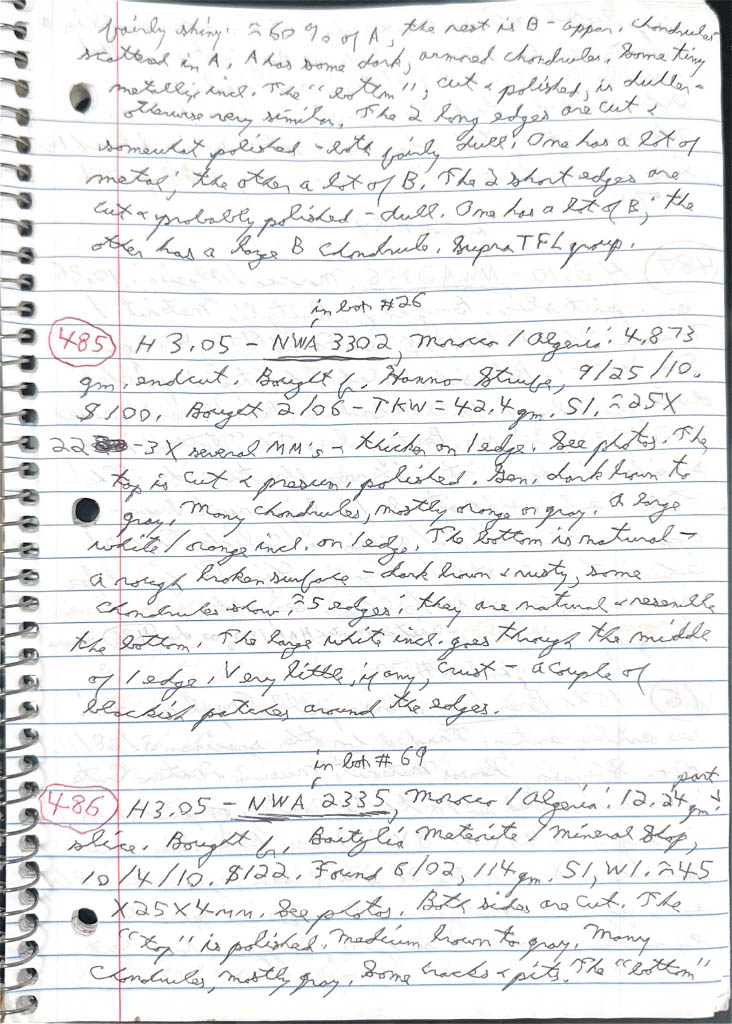 fairly shiny. ≈60% of A, the rest is B - appar. chondrules
scattered in A. A has some dark, armored chondrules. Some tiny
metallic incl. The "bottom", cut & polished, is duller -
otherwise very similar. The 2 long edges are cut &
somewhat polished - both fairly dull. One has a lot of
metal; the other a lot of B. The 2 short edges are
cut & probably polished - dull. One has a lot of B; the
other has a large B chondrule. Supra TFL group.
in box #26
485 H 3.05 - NWA 3302, Morocco / Algeria: 4.873
gm. endcut. Bought f. Hanno Strufe, 9/25/10.
$100. Bought 2/06 - TKW = 42.4 gm. S1. ≈25X
22 - 3 X several MM's - thicker on 1 edge. See photos. The
top is cut & presum. polished. Gen. dark brown to
gray. Many chondrules, mostly orange or gray. A large
white / orange incl. on 1 edge. The bottom is natural -
a rough broken surface - dark brown & rusty, some
chondrules show. ≈5 edges; they are natural & resemble
the bottom. The large white incl. goes through the middle
of 1 edge. Very little, if any, crust - a couple of
blackish patches around the edges.
in box #69
486 H3.05 - NWA 2335, Morocco / Algeria: 12.24 gm. part
slice. Bought f. Baitylia Meteorite / Mineral Shop,
10/4/10. $122. Found 6/02, 114 gm. S1, W1. ≈45
X 25 X 4 MM. See photos. Both sides are cut. The
"top" is polished. Medium brown to gray. Many
chondrules, mostly gray. Some cracks & pits. The "bottom"